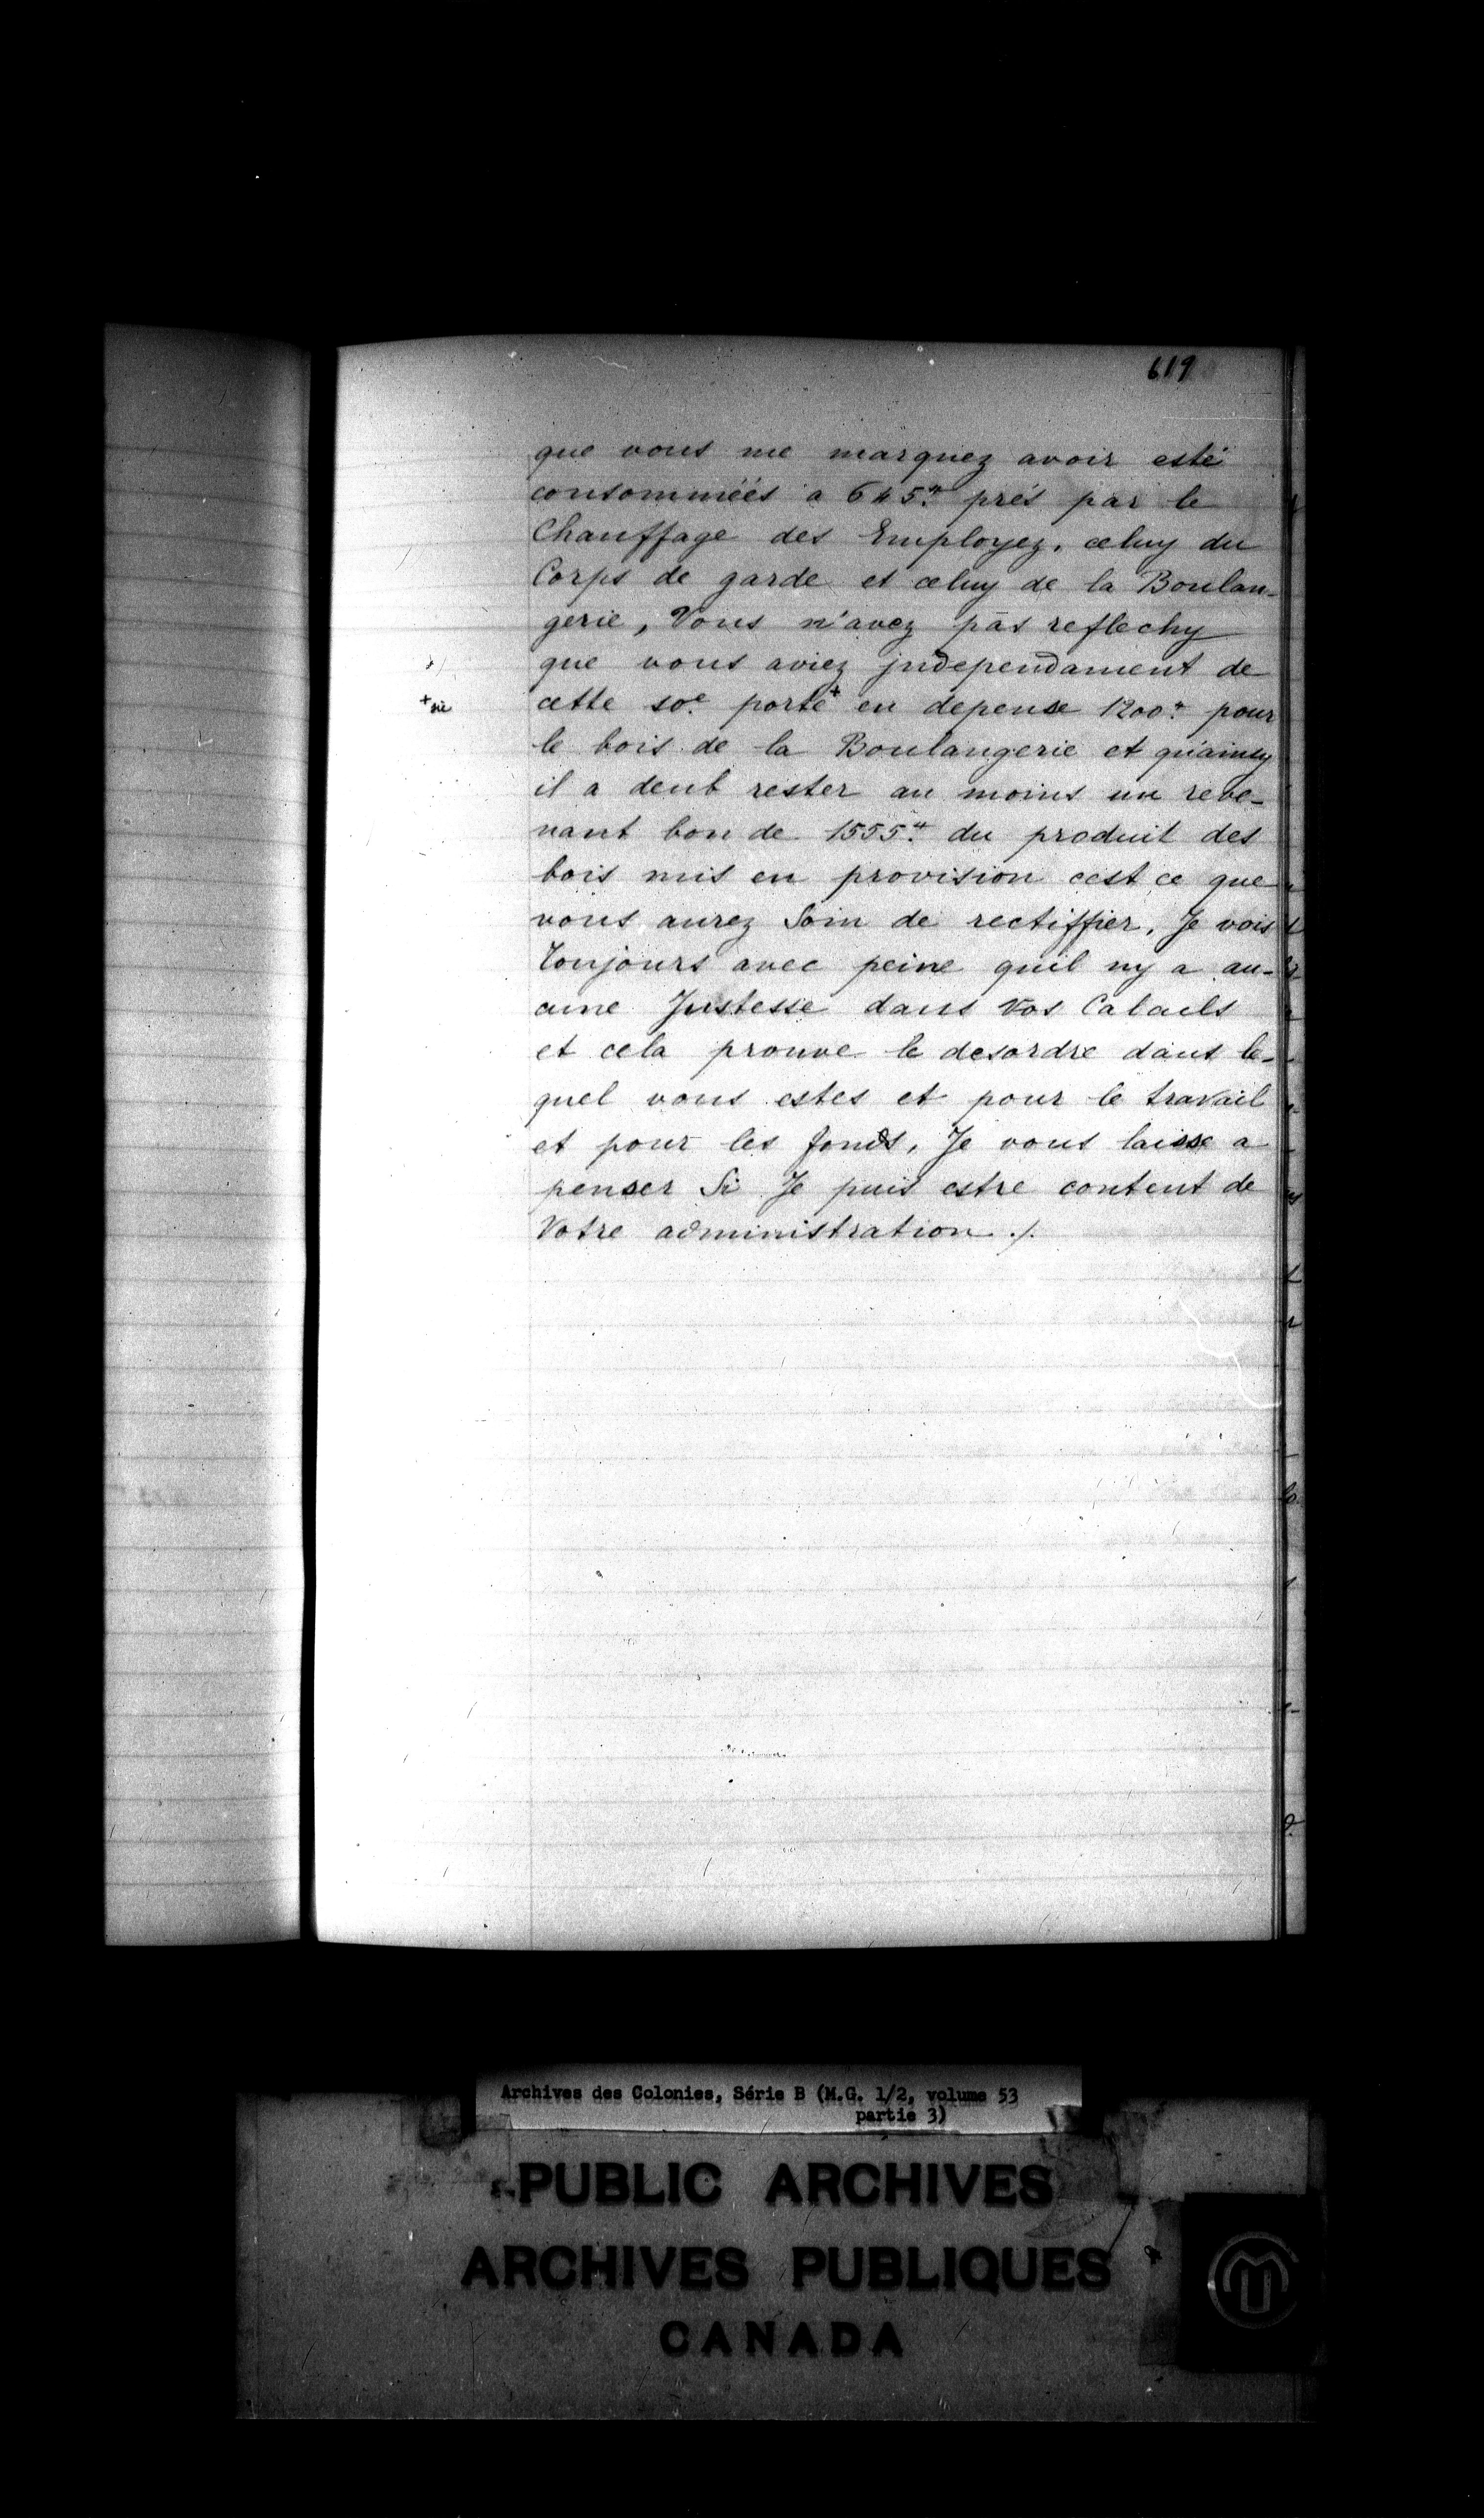 619
que vous me marquez avoir esté
consommées a 645.# prés par le
Chauffage des Employez, celuy du
Corps de garde et celuy de la Boulan-
gerie, Vous n'avez pas reflechy
que vous aviez jndependament de
+ sic
cette soe. porté+ en depense 1200.# pour
le bois de la Boulangerie et qu'ainsy
il a deub rester au moins un reve-
nant bon de 1555.# du produit des
bois mis en provision cest ce que
vous aurez Soin de rectiffier, Je vois
Toujours avec peine quil ny a au-
cune Justesse dans vos Calculs
et cela prouve le desordre dans le-
quel vous estes et pour le travail
et pour les fonds, Je vous laisse a
penser Si Je puis estre content de
Votre administration ./.
Archives des Colonies, Série B (M.G. 1/2, volume 53
partie 3)
PUBLIC ARCHIVES
ARCHIVES PUBLIQUES
CANADA